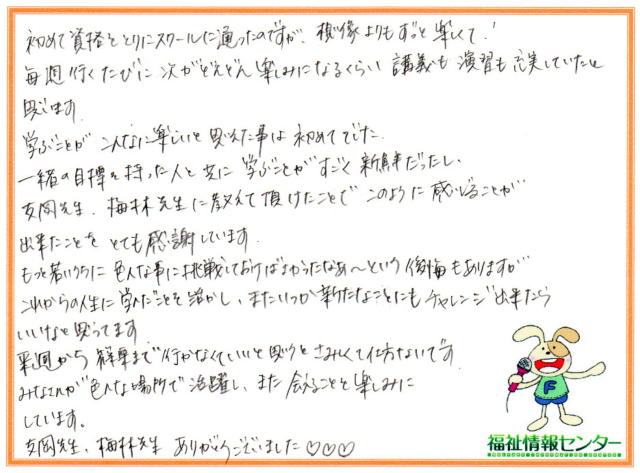 初めて資格をとりにスクールに通ったのですが、想像よりもずっと楽しくて！
毎週行くたびに次がどんどん楽しみになるくらい講義も演習も充実していたと
思います。
学ぶことがこんなに楽しいと思えた事は初めてでした。
一緒の目標を持った人と共に学ぶことがすごく新鮮だったし、
先生、梅林先生に教えて頂けたことでこのように感じることが
出来たことをとても感謝しています。
もっと若いうちに色んな事に挑戦しておけばよかったなあ〜という後悔もありますが
これからの人生に学んだことを活かし、またいつか新たなことにもチャレンジ出来たら
いいなと思ってます。
来週から まで行かなくていいと思うとさみしくて仕方ないです。
みなさんが色んな場所で活躍し、また会えることを楽しみに
しています。
先生、梅林先生 ありがとうございました♡♡♡
F
福祉情報センター